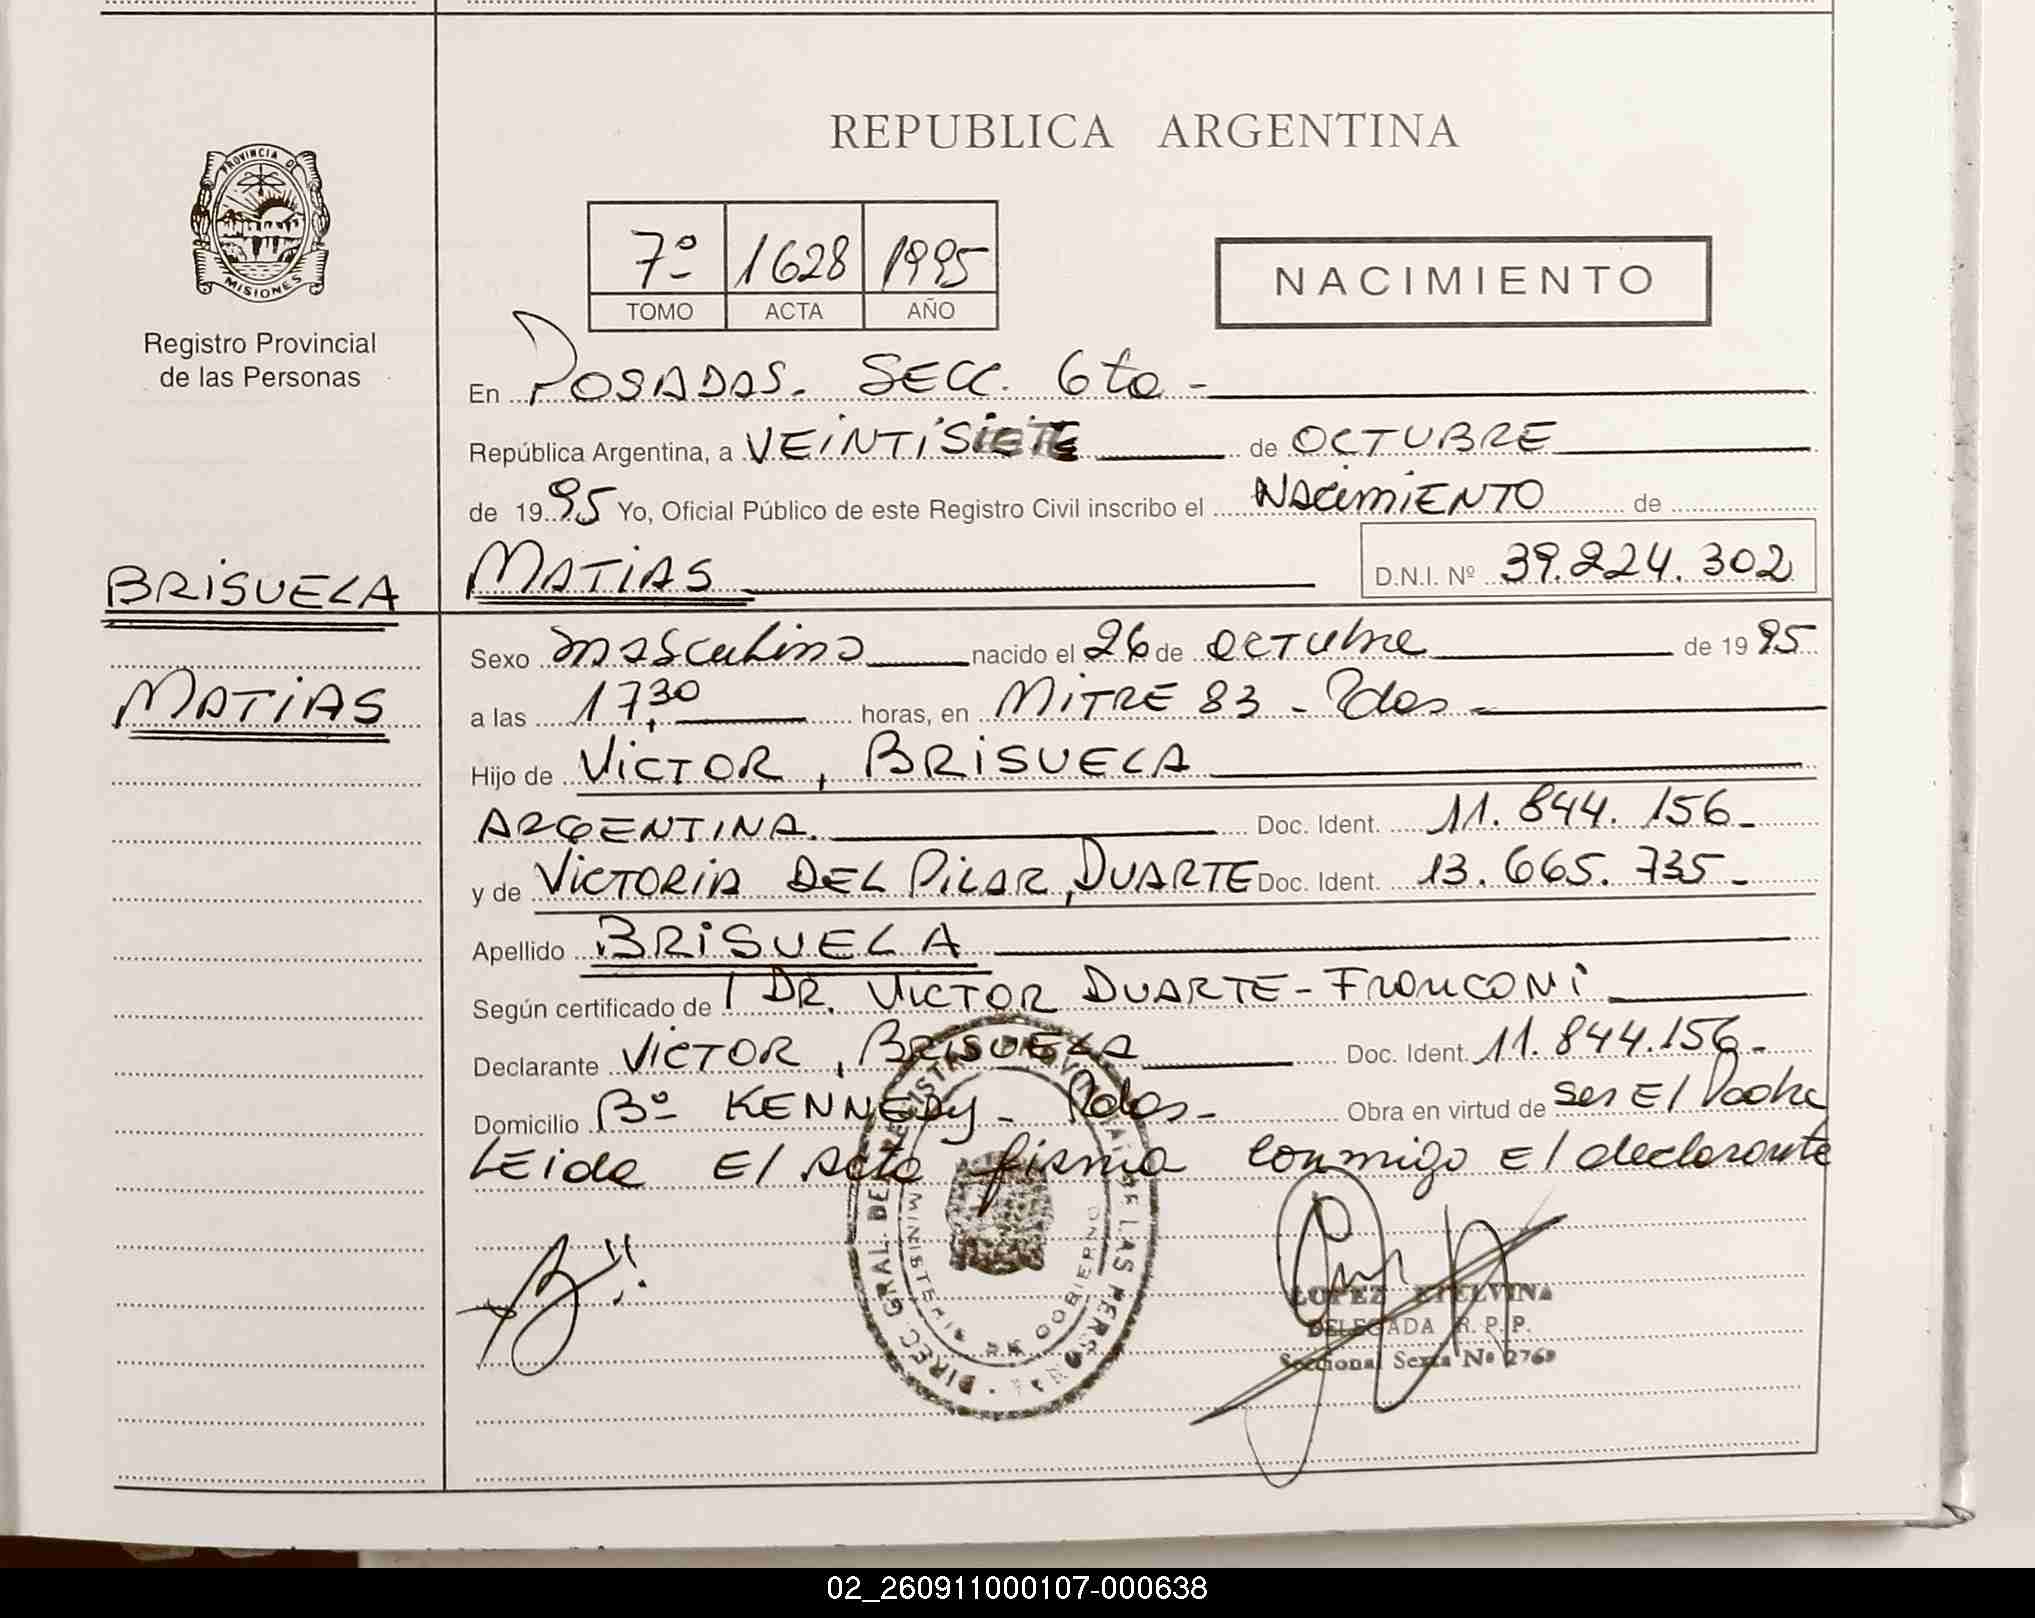 REPUBLICA ARGENTINA
PROVINCIA DE
MISIONES
Registro Provincial
de las Personas
7º 1628 1995
TOMO ACTA AÑO
NACIMIENTO
En POSADAS. SECC. 6ta -
República Argentina, a VEINTISIETE de OCTUBRE
de 1995 Yo, Oficial Público de este Registro Civil inscribo el NACIMIENTO de
BRISUELA MATIAS D.N.I. Nº 39.224.302
Sexo masculino nacido el 26 de octubre de 1995
MATIAS
a las 17,30 horas, en MITRE 83 - Pdas -
Hijo de VICTOR, BRISUELA
ARGENTINA. Doc. Ident. 11.844.156 -
y de VICTORIA DEL PILAR, DUARTE Doc. Ident. 13.665.735 -
Apellido BRISUELA
Según certificado de DR. VICTOR DUARTE - FRONCONI
Declarante VICTOR, BRISUELA Doc. Ident. 11.844.156 -
Domicilio Bº KENNEDY - Pdas - Obra en virtud de ser El Padre
Leida El Acta firma conmigo El declarante
DIREC. GRAL. DEL REGISTRO PROVINCIAL DE LAS PERSONAS
MINISTERIO DE GOBIERNO
LOPEZ ETELVINA
DELEGADA R. P. P.
Seccional Sexta Nº 2769
02_260911000107-000638